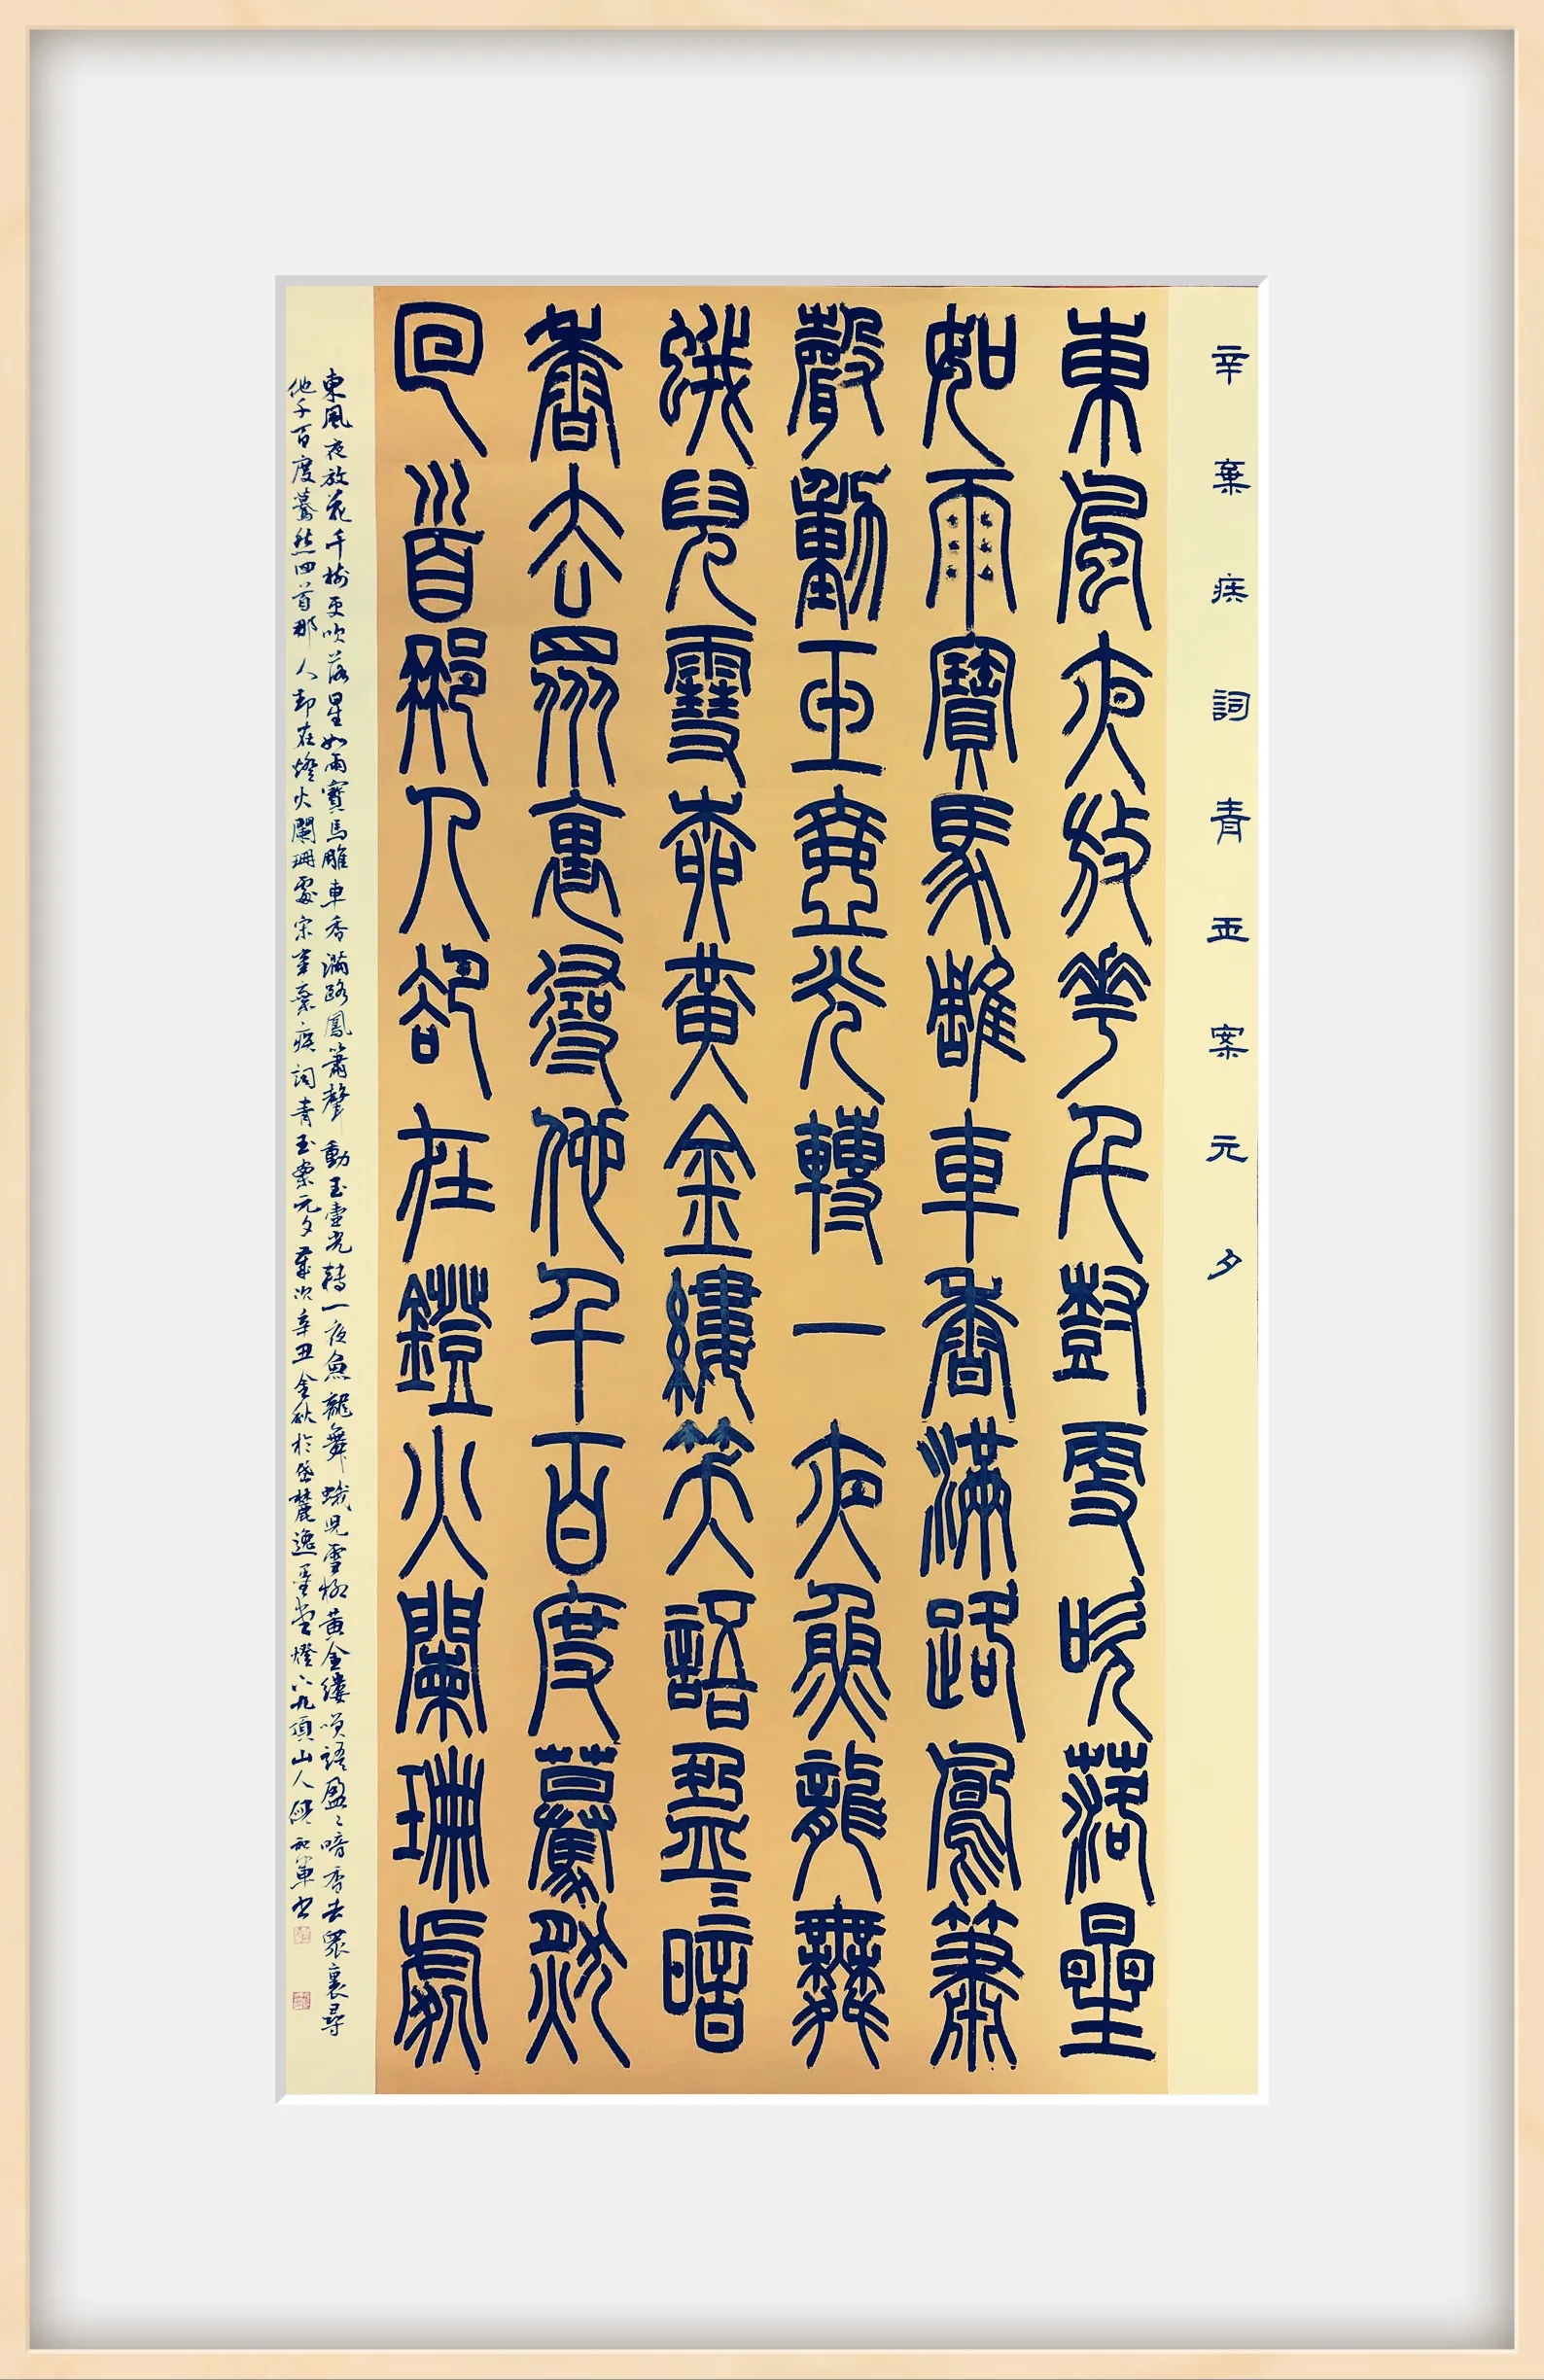 辛棄疾詞青玉案元夕
東風夜放花千樹更吹落星
如雨寶馬雕車香滿路鳳簫
聲動玉壺光轉一夜魚龍舞
蛾兒雪柳黃金縷笑語盈〻暗
香去眾裏尋他千百度驀然
回首那人卻在鐙火闌珊處
東風夜放花千樹更吹落星如雨寶馬雕車香滿路鳳簫聲動玉壺光轉一夜魚龍舞蛾兒雪柳黃金縷笑語盈〻暗香去眾裏尋
他千百度驀然回首那人却在燈火闌珊處宋辛棄疾詞青玉案元夕歲次辛丑金秋於岱麓逸墨堂燈下九頂山人軍書